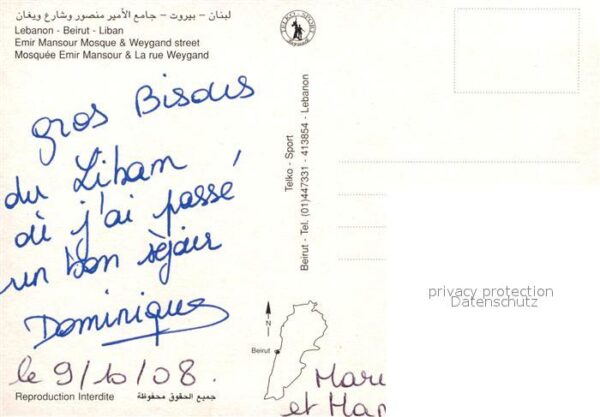 لبنان – بيروت – جامع الأمير منصور وشارع ويغان
Lebanon - Beirut - Liban
Emir Mansour Mosque & Weygand street
Mosquée Emir Mansour & La rue Weygand
TELKO - SPORT
gros Bisous
du Liban
où j'ai passé
un bon séjour
Dominique
le 9/10/08.
Telko - Sport
Beirut - Tel. (01)447331 - 413854 - Lebanon
privacy protection
Datenschutz
N
Beirut
Reproduction Interdite
جميع الحقوق محفوظة
Marie
et Mar